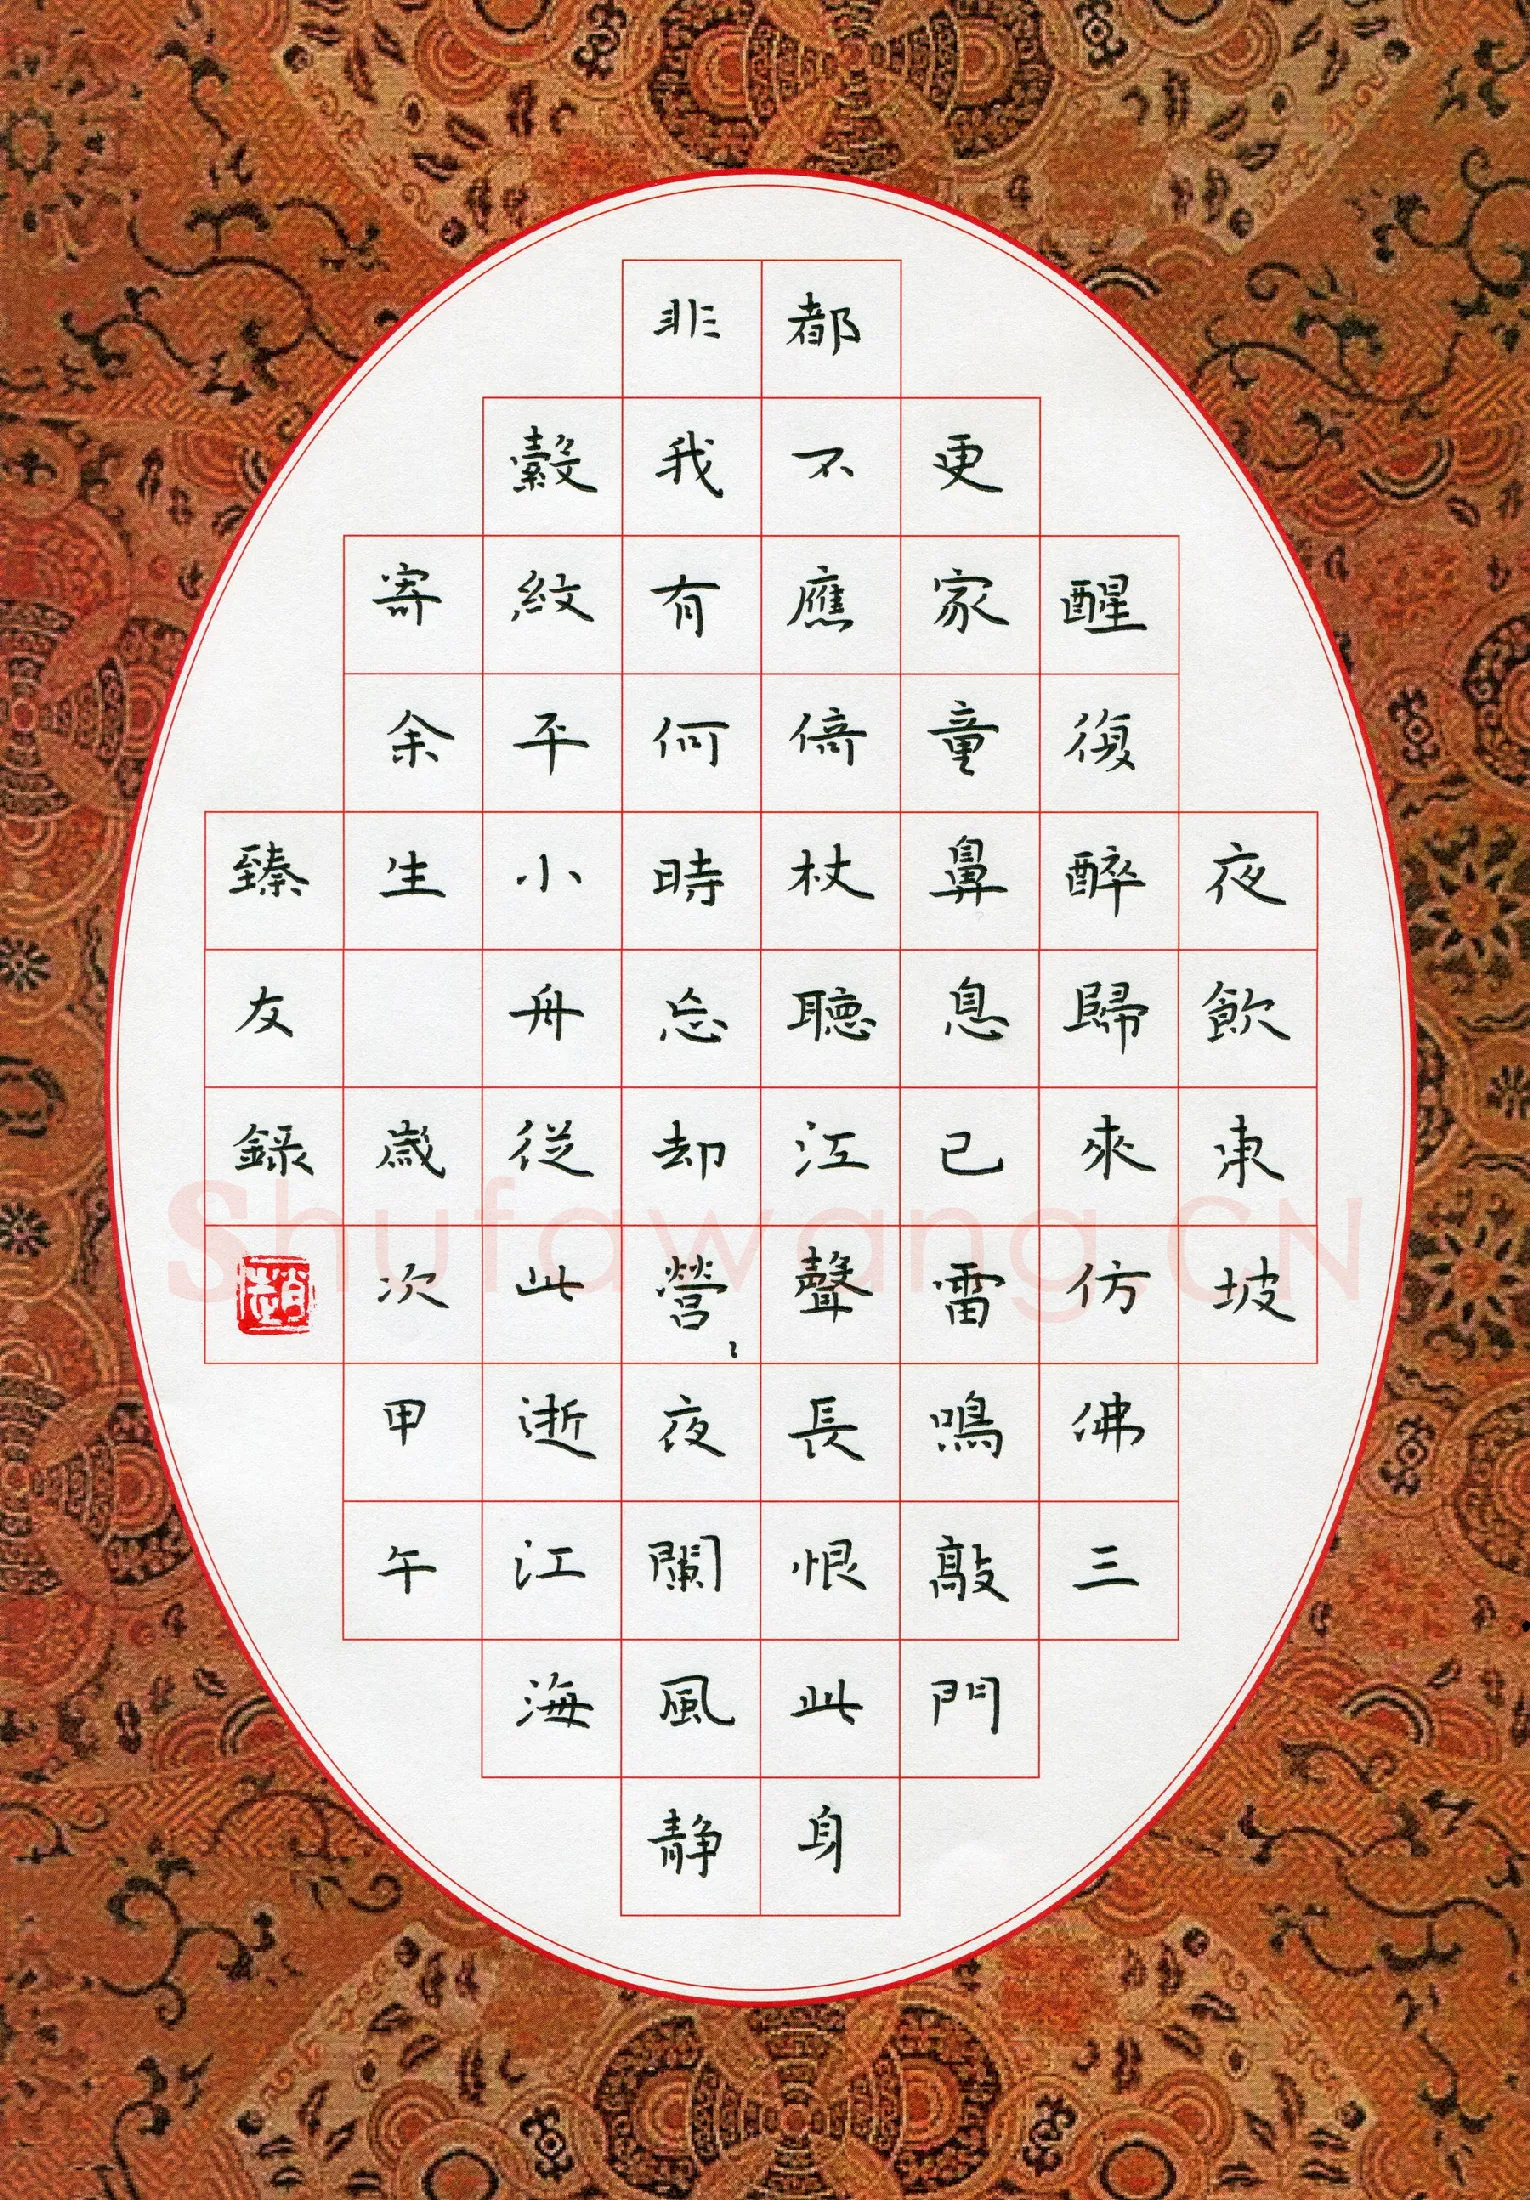 夜飲東坡
醒復醉歸來仿佛三
更家童鼻息已雷鳴敲門
都不應倚杖聽江聲長恨此身
非我有何時忘却營、夜闌風静
縠紋平小舟從此逝江海
寄余生 歲次甲午
臻友録
趙
Shufawang.CN